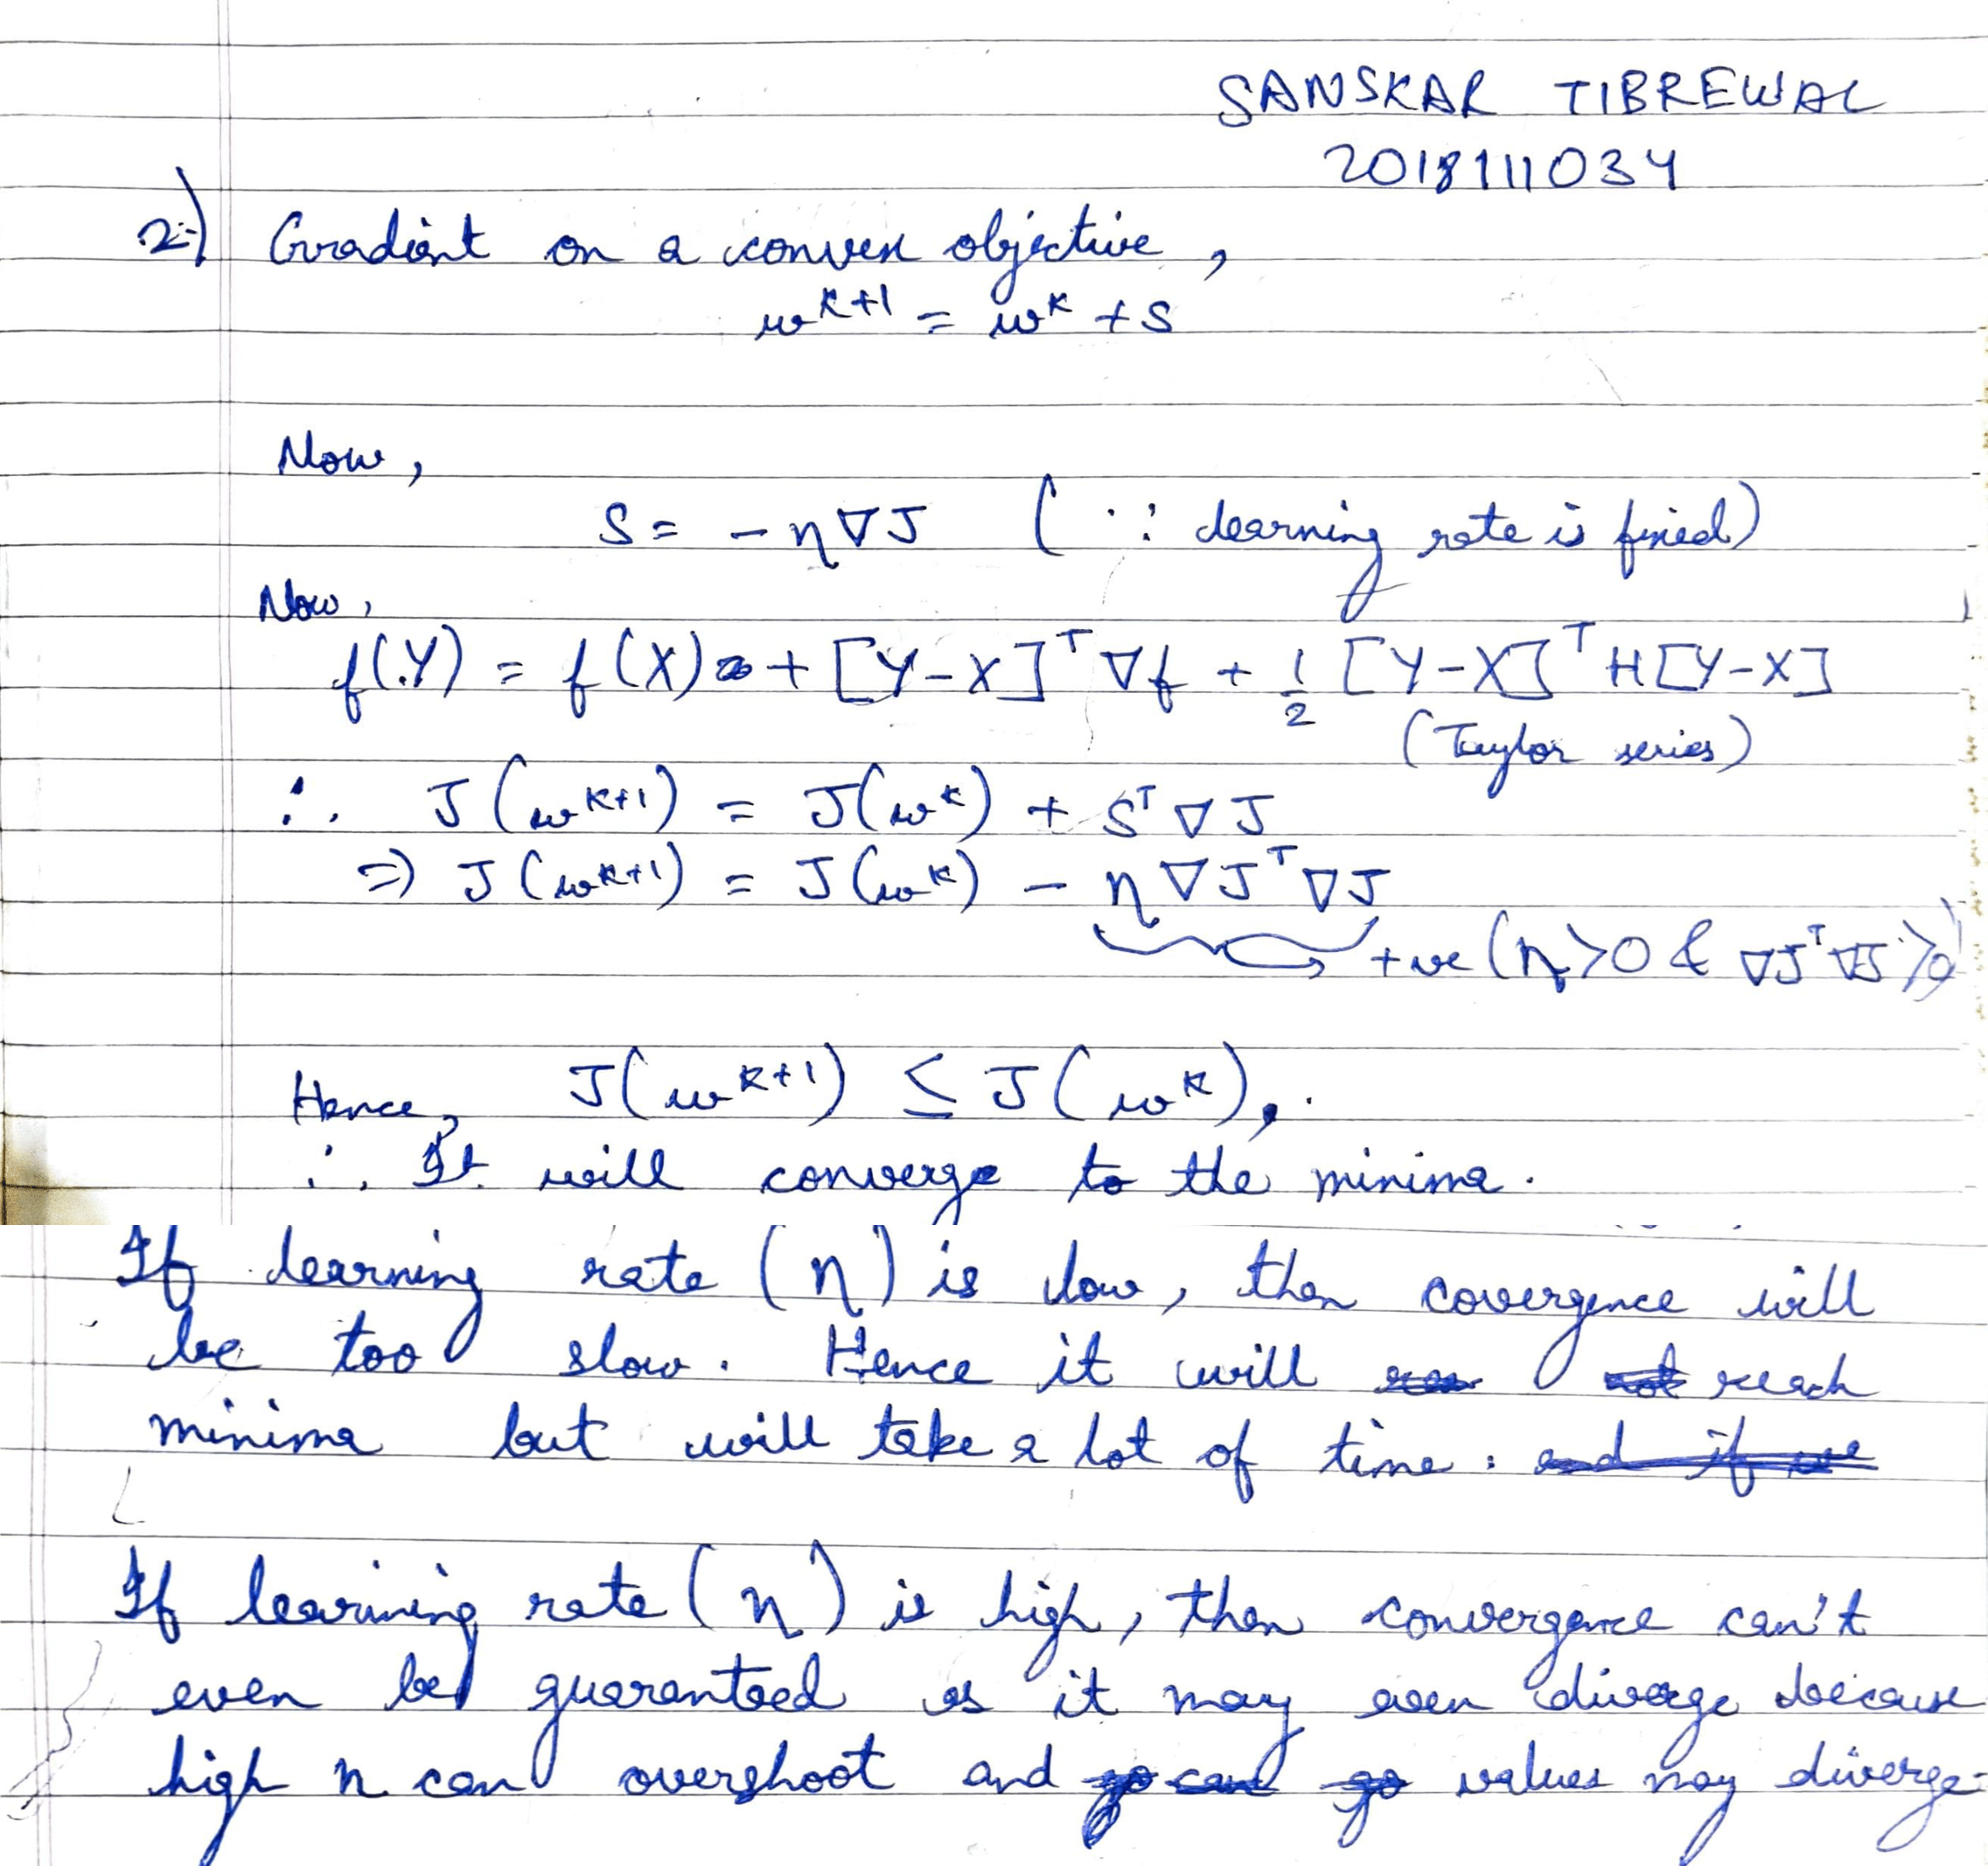 SANSKAR TIBREWAL
2018111034
2.) Gradient on a convex objective,
w^{k+1} = w^k + S
Now,
S = -η∇J (∵ learning rate is fixed)
Now,
f(Y) = f(X) + [Y-X]^T ∇f + 1/2 [Y-X]^T H[Y-X]
(Taylor series)
∴ J(w^{k+1}) = J(w^k) + S^T ∇J
⇒ J(w^{k+1}) = J(w^k) - η∇J^T∇J
+ve (η>0 & ∇J^T∇J ≥0)
Hence, J(w^{k+1}) ≤ J(w^k),.
∴ It will converge to the minima.
If learning rate (η) is low, then covergence will
be too slow. Hence it will reach
minima but will take a lot of time. and if we
If learining rate (η) is high, then convergence can't
even be guaranteed as it may even diverge because
high η can overshoot and go can go values may diverge.